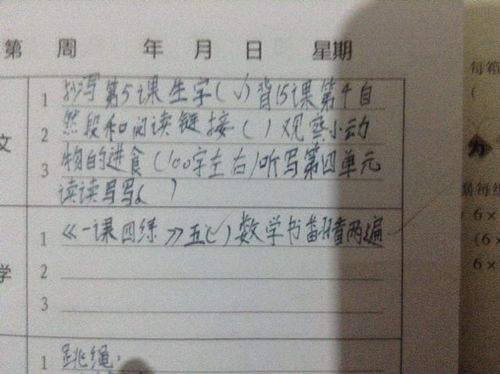 第 周 年 月 日 星期
每箱
(
文
1 抄写第5课生字(√)背15课第4自
2 然段和阅读链接( )观察小动
3 物的进食(100字左右)听写第四单元
读读写写( )
学
1 《一课四练》五(√)数学书翻看两编
2
3
1 跳绳:
每
6×
(6×
6×